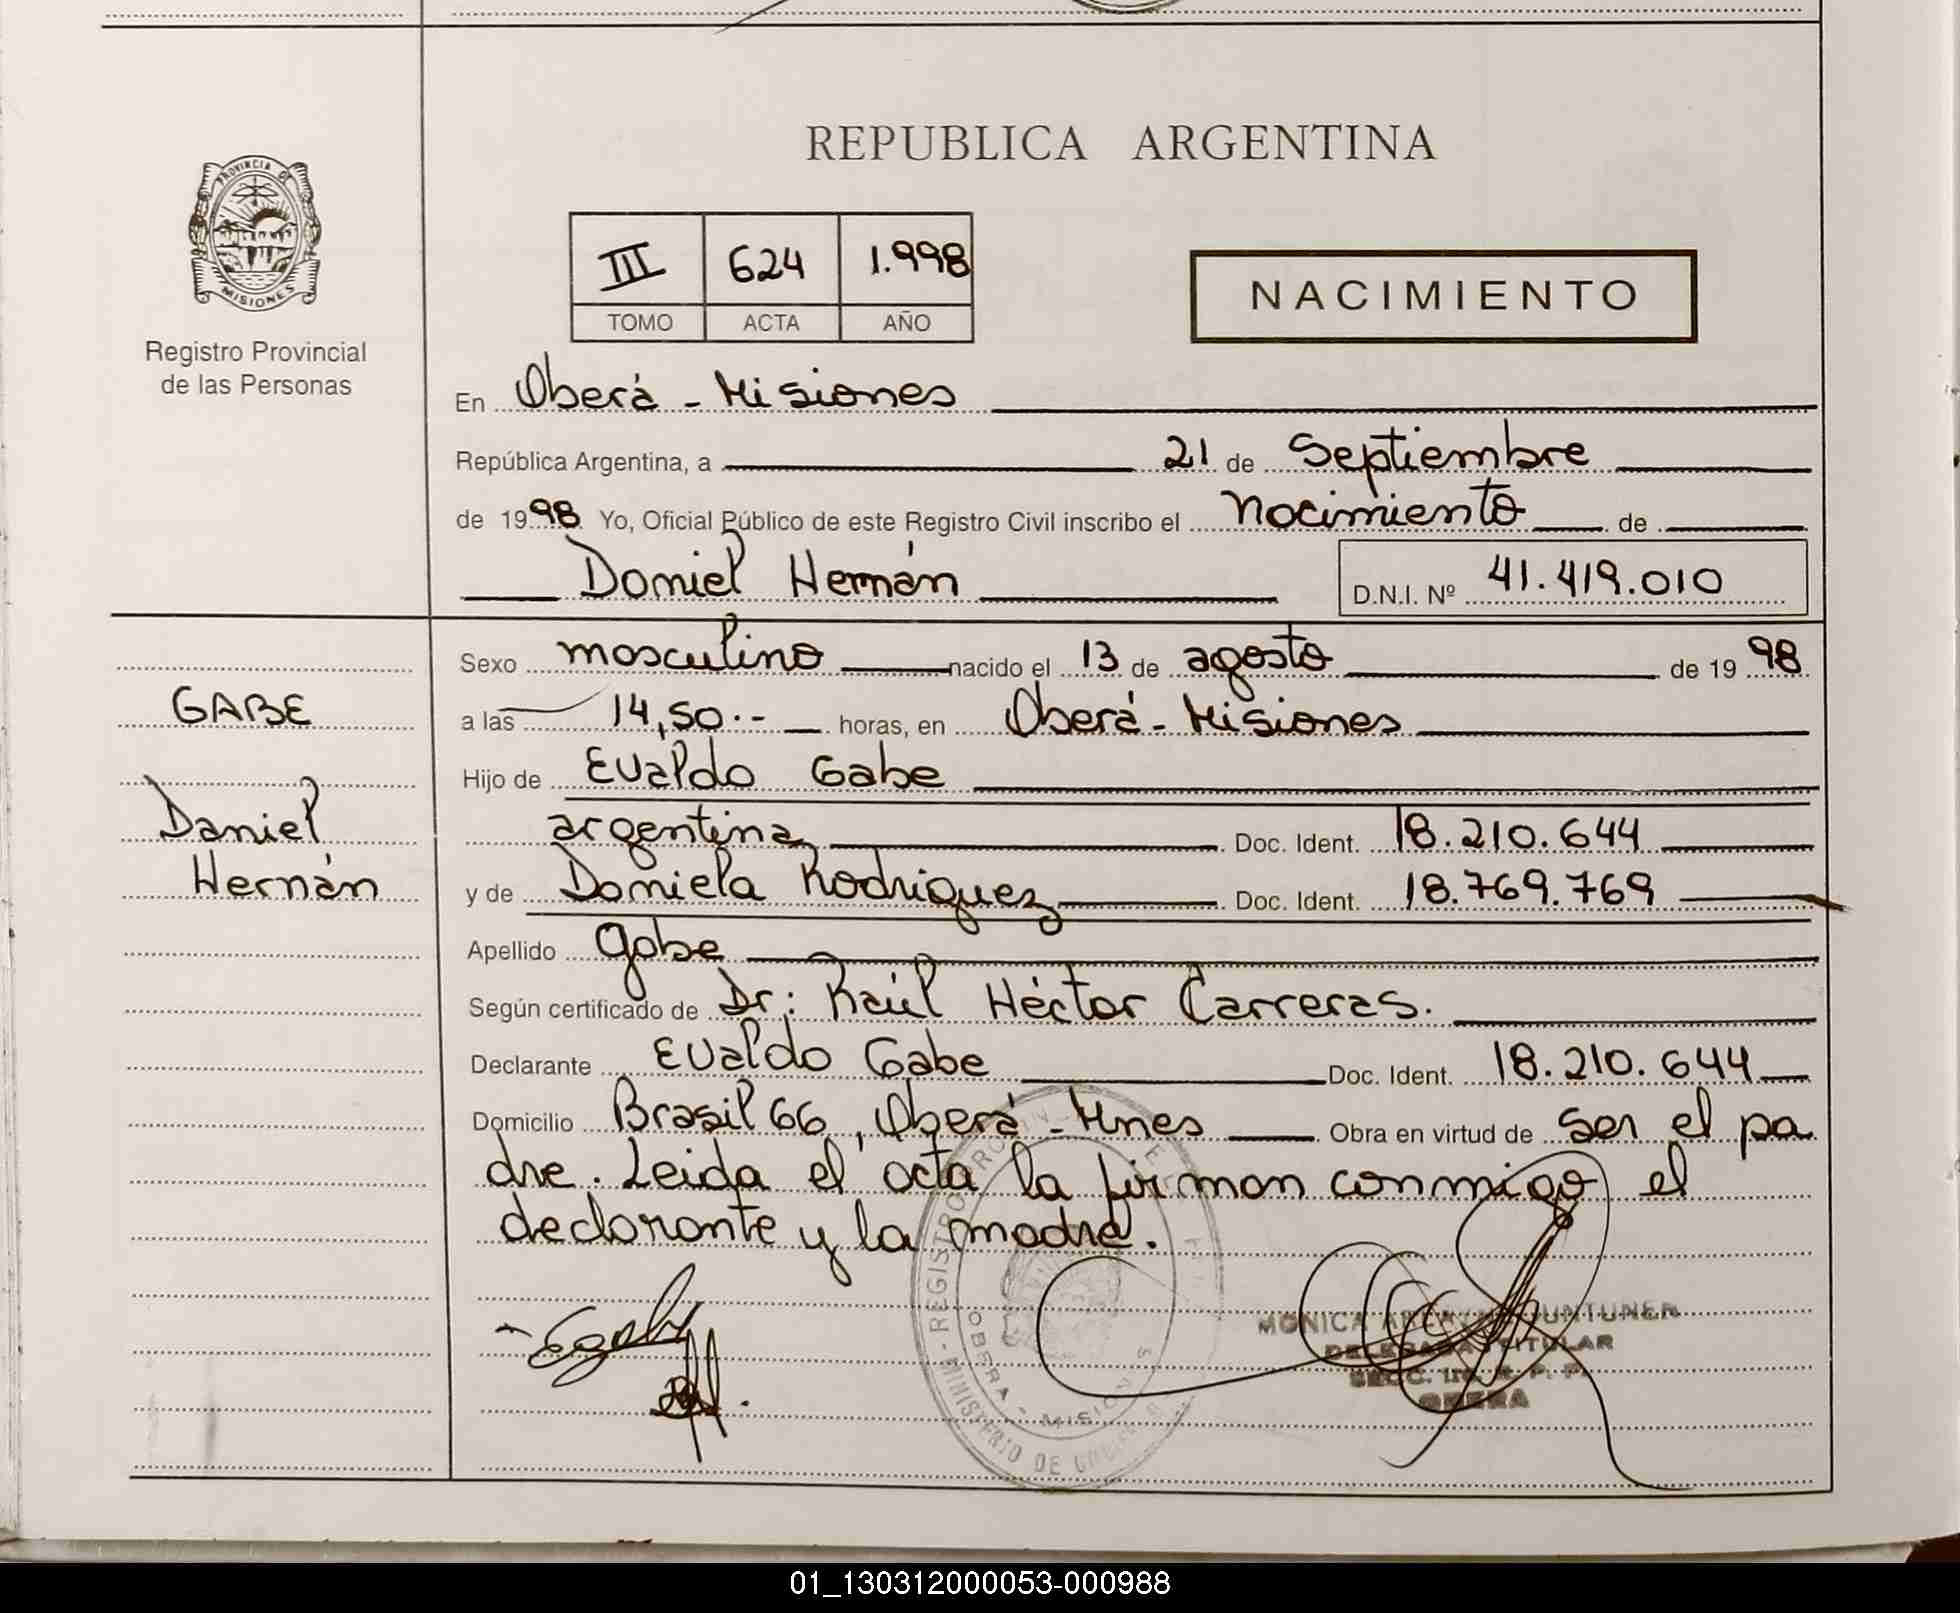 REPUBLICA ARGENTINA
PROVINCIA DE
MISIONES
Registro Provincial
de las Personas
III 624 1.998
TOMO ACTA AÑO
NACIMIENTO
En Oberá - Misiones
República Argentina, a 21 de Septiembre
de 1998 Yo, Oficial Público de este Registro Civil inscribo el Nacimiento de
Daniel Hernán D.N.I. Nº 41.419.010
GABE
Daniel
Hernán
Sexo masculino nacido el 13 de agosto de 19 98
a las 14,50.- horas, en Oberá - Misiones
Hijo de Evaldo Gabe
argentina Doc. Ident. 18.210.644
y de Daniela Rodriguez Doc. Ident. 18.769.769
Apellido Gabe
Según certificado de Dr: Raúl Héctor Carreras.
Declarante Evaldo Gabe Doc. Ident. 18.210.644
Domicilio Brasil 66, Oberá - Mnes Obra en virtud de ser el pa
dre. Leida el acta la firman conmigo el
declarante y la madre.
REGISTRO
OBERA - MISIONES
MINISTERIO DE
MONICA
DELEGADA TITULAR
OBERA
01_130312000053-000988